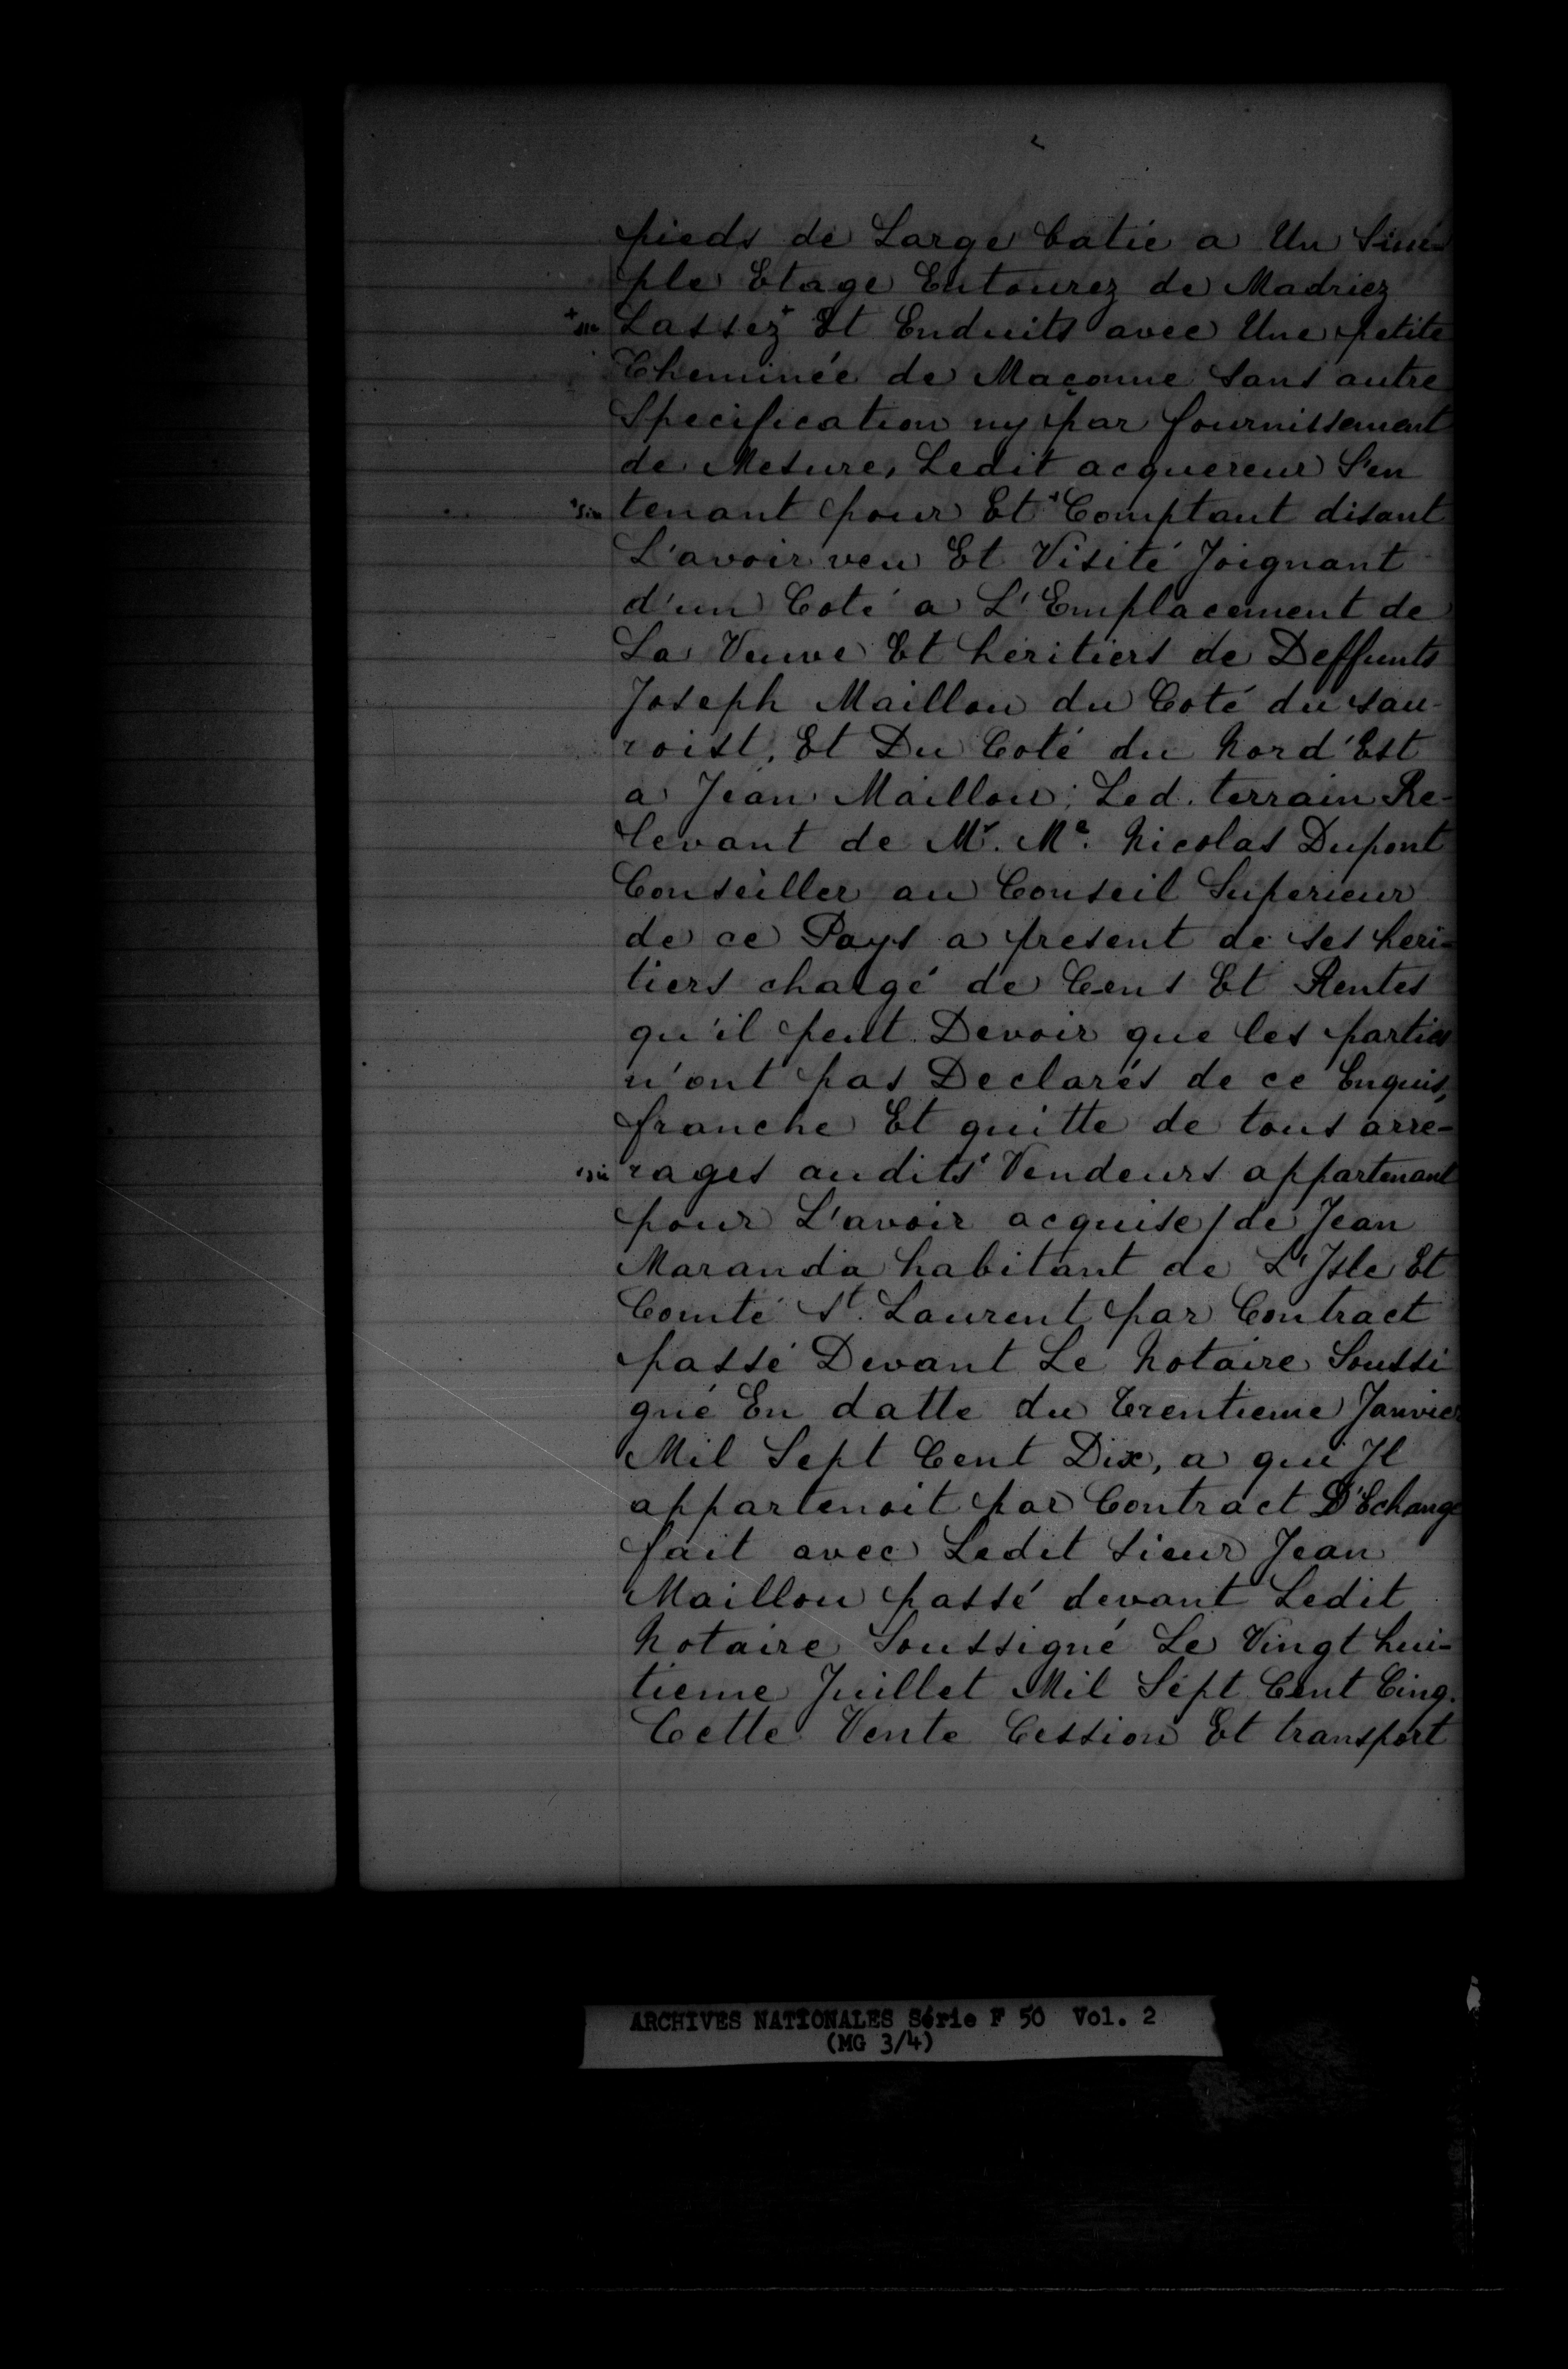 pieds de Large batie a Un Sim-
ple Etage Entourez de Madriez
+sic Lassez+ Et Enduits avec Une petite
Cheminée de Maçonne sans autre
Specification ny par fournissement
de Mesure, Ledit acquereur S'en
+sic tenant pour Et+ Comptant disant
L'avoir veu Et Visité Joignant
d'un Coté a L'Emplacement de
La Veuve Et heritiers de Deffunts
Joseph Maillou du Coté du sau-
roist, Et Du Coté du Nord'Est
a Jean Maillou; Led. terrain Re-
levant de Mr. Me. Nicolas Dupont
Conseiller au Conseil Superieur
de ce Pays a present de ses heri-
tiers chargé de Cens Et Rentes
qu'il peut Devoir que les parties
n'ont pas Declarés de ce Enquis,
franche Et quitte de tous arre-
+sic rages audits+ Vendeurs appartenant
pour L'avoir acquise / de Jean
Maranda habitant de L'Isle Et
Comté St. Laurent par Contract
passé Devant Le Notaire Soussi
gné En datte du trentieme Janvier
Mil Sept Cent Dix, a qui Il
appartenoit par Contract D'Echange
fait avec Ledit sieur Jean
Maillou passé devant Ledit
Notaire Soussigné Le Vingt hui-
tieme Juillet Mil Sept Cent Cinq.
Cette Vente Cession Et transport
ARCHIVES NATIONALES Série F 50 Vol. 2
(MG 3/4)